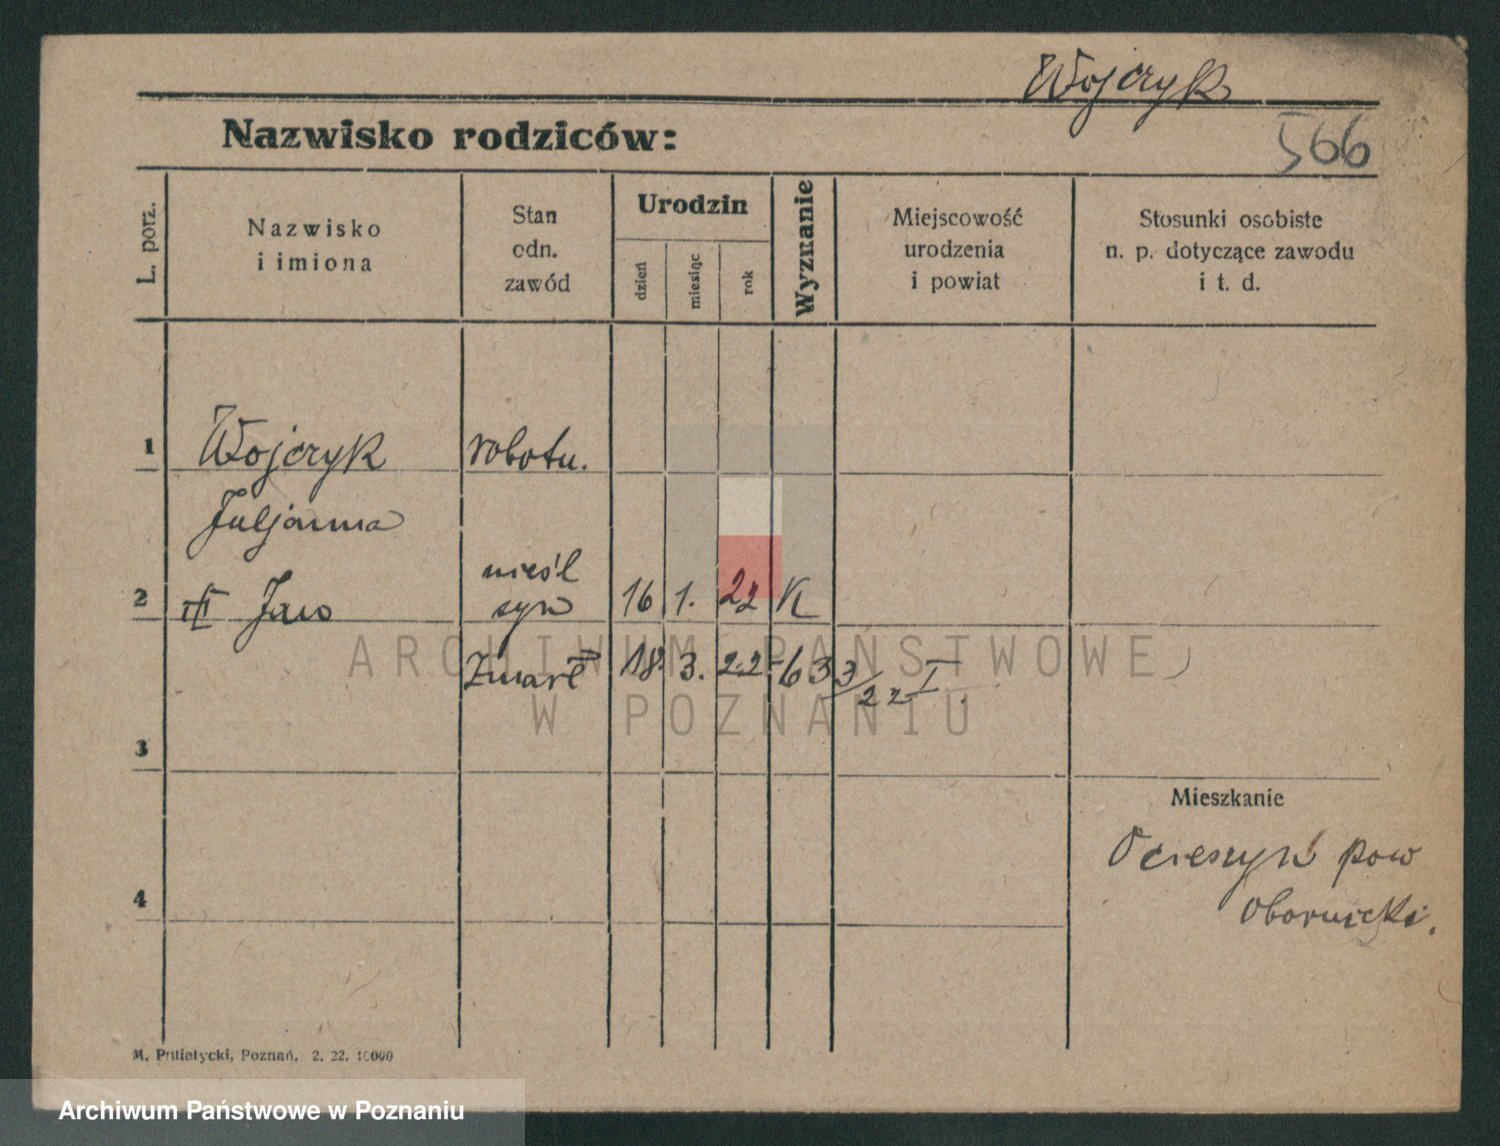 Wojczyk
Nazwisko rodziców:
566
L. porz.
Nazwisko
i imiona
Stan
odn.
zawód
Urodzin
dzień
miesiąc
rok
Wyznanie
Miejscowość
urodzenia
i powiat
Stosunki osobiste
n. p. dotyczące zawodu
i t. d.
1 Wojczyk robotn.
Juljanna
nieśl
2 Jan syn 16 1. 22 K
zmarł 18. 3. 22 - 633/22 I
3
Mieszkanie
Ocieszyn pow
Obornicki.
4
M. Putiatycki, Poznań. 2. 22. 10000
ARCHIWUM PAŃSTWOWE
W POZNANIU
Archiwum Państwowe w Poznaniu